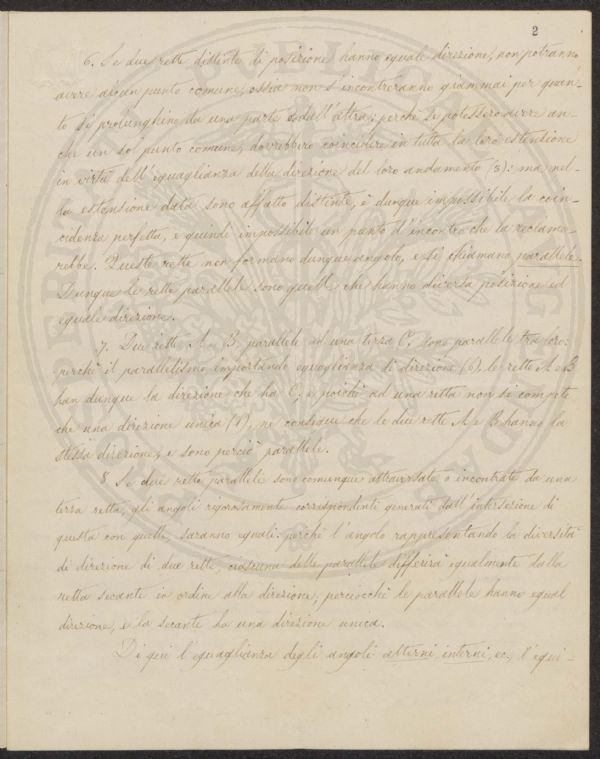 2
6. Se due rette distinte di posizione hanno eguale direzione, non potranno
avere alcun punto comune, ossia non s'incontreranno giammai per quan-
to si prolunghino da una parte e dall'altra: perchè se potessero avere an-
che un sol punto comune, dovrebbero coincidere in tutta la loro estensione
in virtù dell'eguaglianza della direzione del loro andamento (3): ma nel-
la estensione data sono affatto distinte, è dunque impossibile la coin-
cidenza perfetta, e quindi impossibile un punto d'incontro che la reclame-
rebbe. Queste rette non formano dunque angolo, e si chiamano parallele.
Dunque le rette parallele sono quelle che hanno diversa posizione ed
eguale direzione.
7. Due rette A e B, parallele ad una terza C, sono parallele tra loro:
perchè il parallelismo importando eguaglianza di direzione (6), le rette A e B
han dunque la direzione che ha C, e poichè ad una retta non si compete
che una direzione unica (1), ne consegue che le due rette A e B hanno la
stessa direzione, e sono perciò parallele.
8 Se due rette parallele sono comunque attraversate o incontrate da una
terza retta, gli angoli rigorosamente corrispondenti generati dall'intersezione di
questa con quelle, saranno eguali: perchè l'angolo rappresentando la diversità
di direzione di due rette, ciascuna delle parallele differirà egualmente dalla
retta secante in ordine alla direzione, perciocchè le parallele hanno egual
direzione, e la secante ha una direzione unica.
Di qui l'eguaglianza degli angoli alterni, interni, ec., l'equi-
PVBLICA